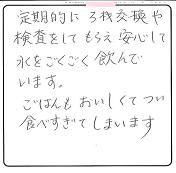 定期的に ろ材交換や
検査をして もらえ 安心して
水をごくごく飲んで
います。
ごはんも おいしくて つい
食べすぎて しまいます